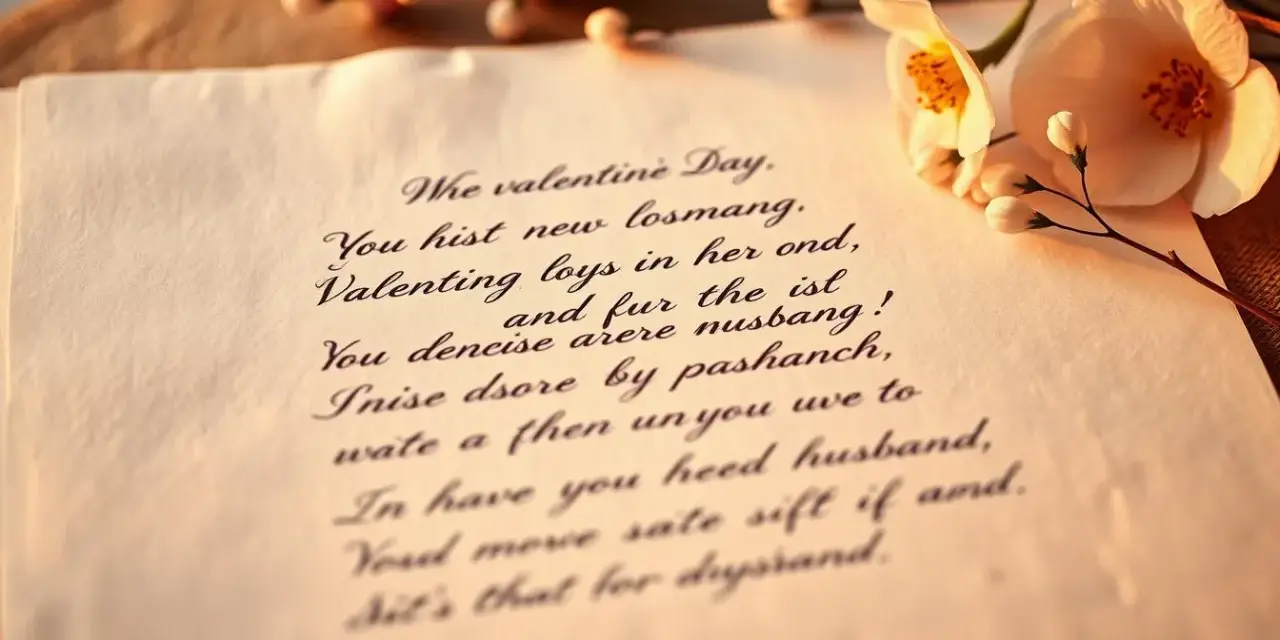 Whe valentine Day.
You hist new losmang.
Valenting loys in her ond,
and fur the ist
You dencise arere nusbang!
Inise dsore by pashanch,
wate a fhen un you uve to
In have you heed husband,
Youd morve sate sift if amd.
that for